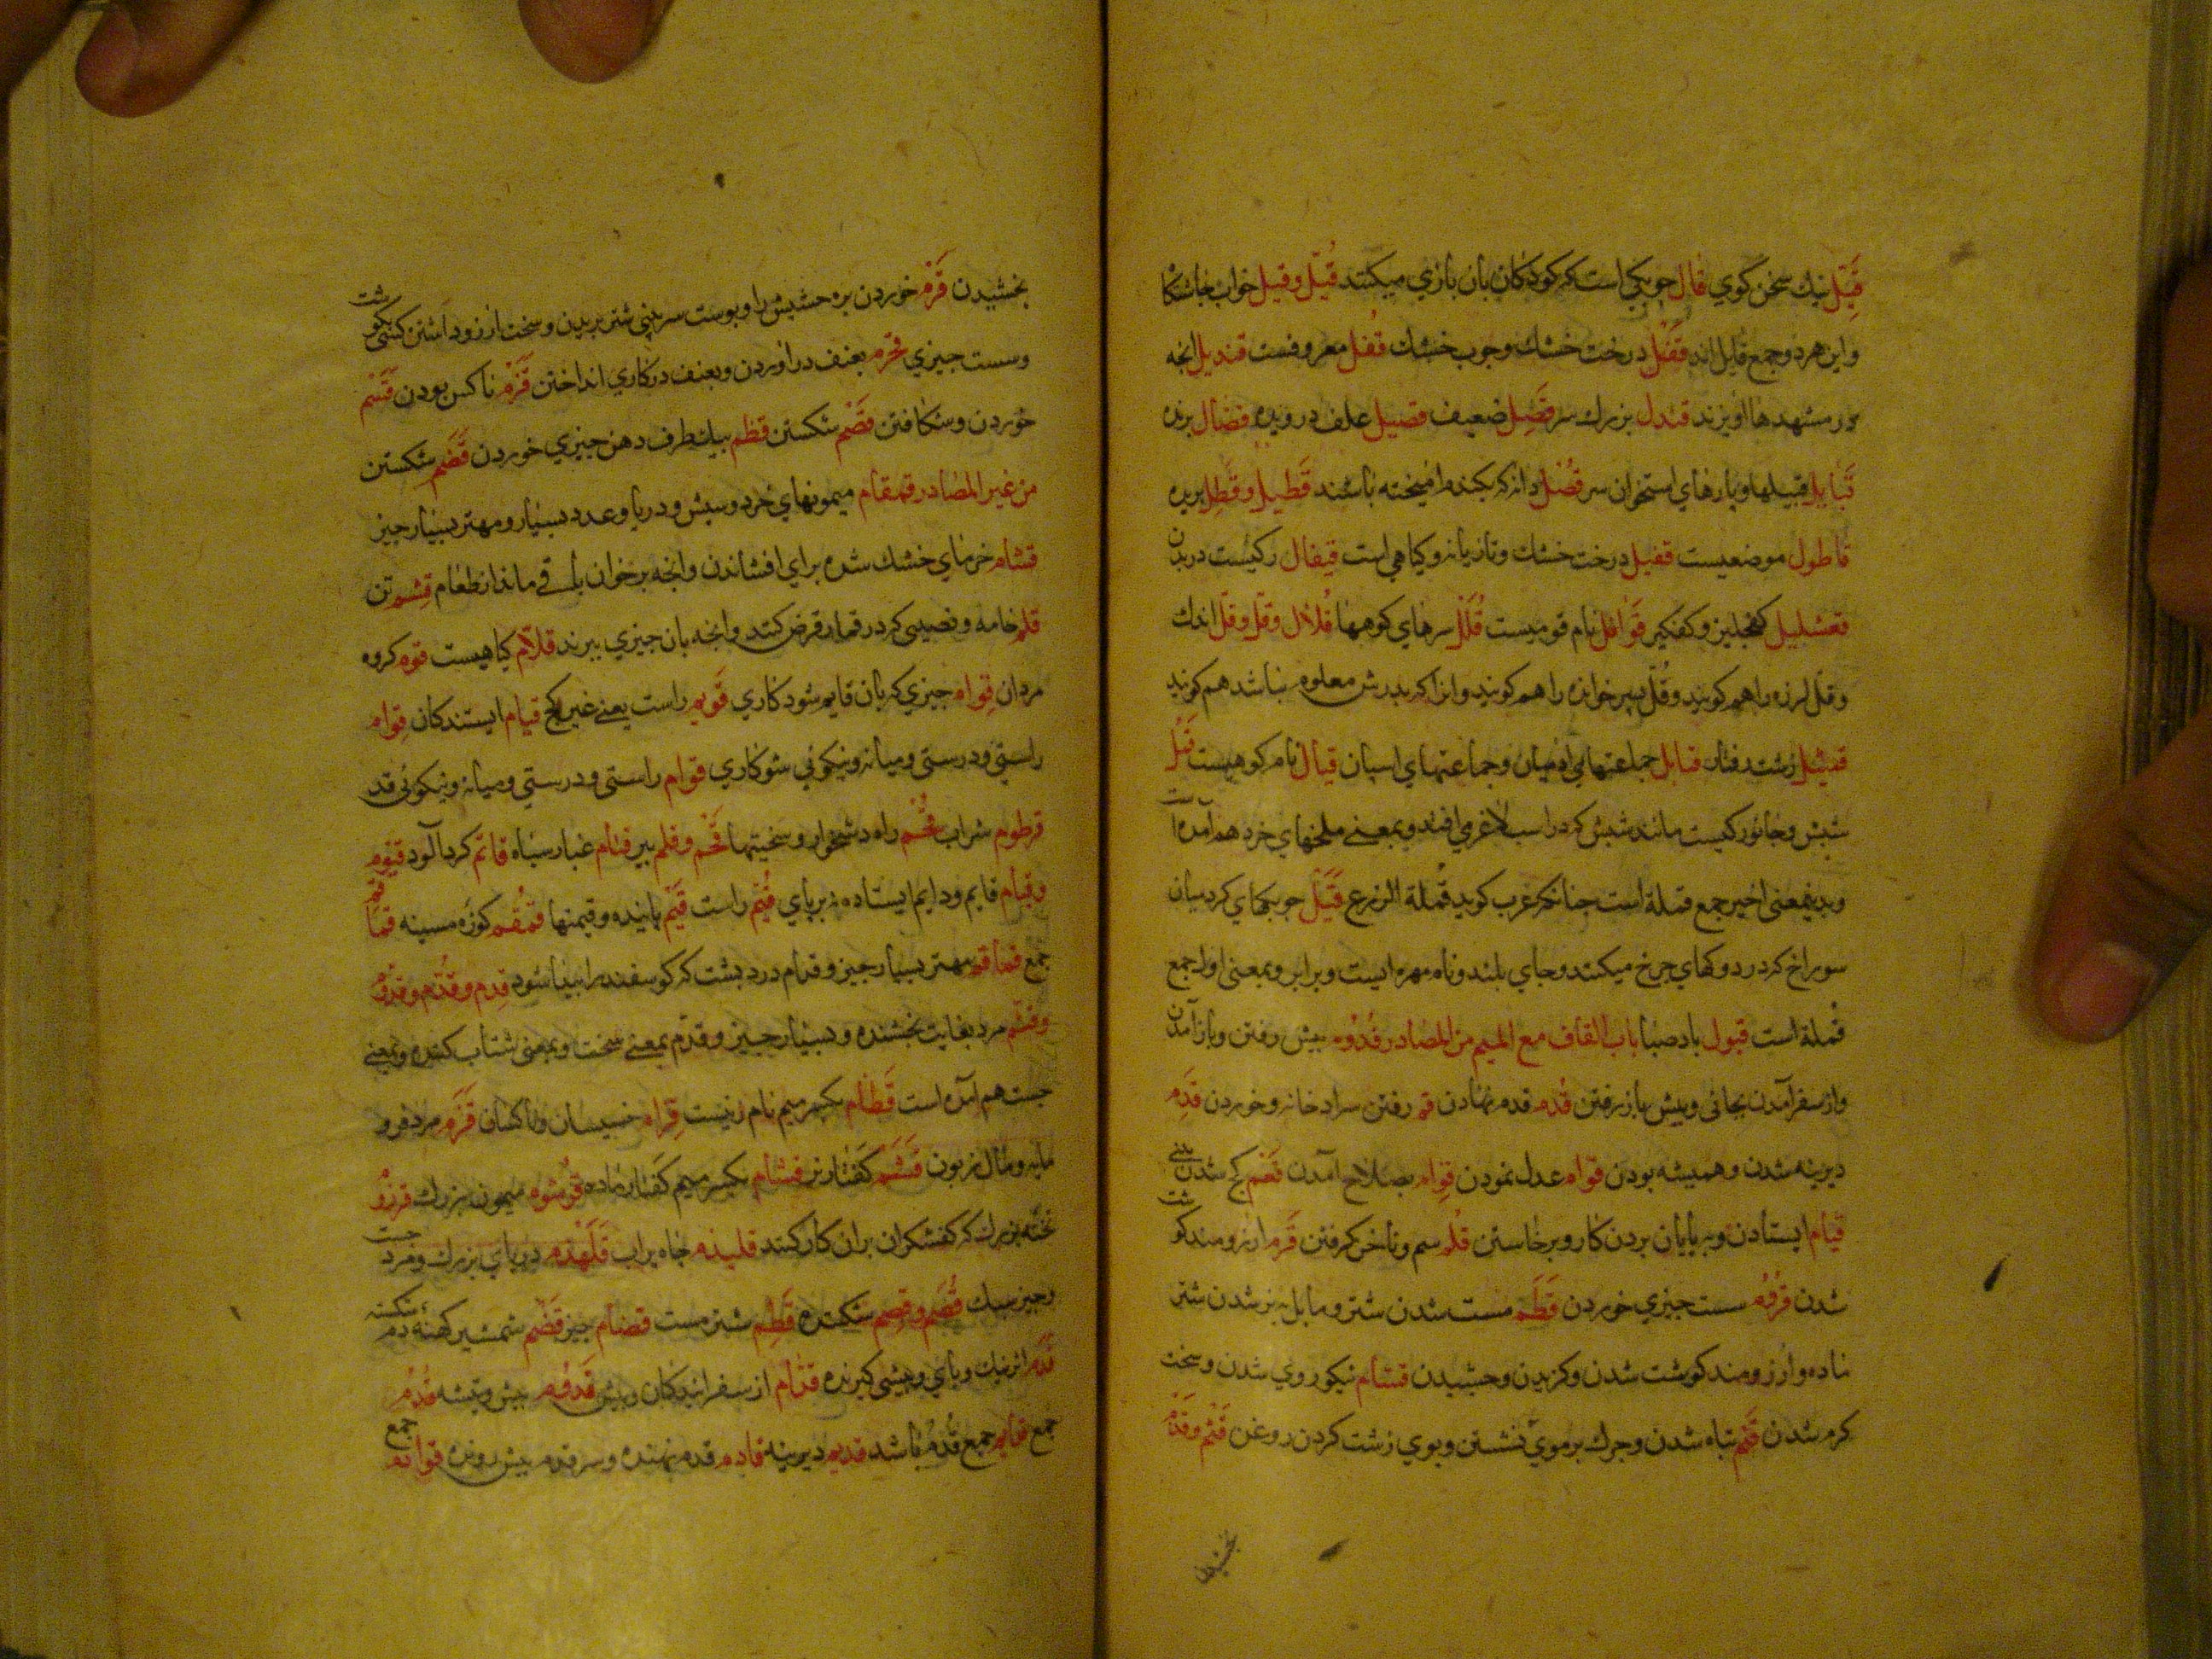 قَیِّل نیك سخن كوي قال جوبكی است كه كودكان بان بازي میكنند قُیَّل وقیل خواب جاشتكا
واین هردو جمع قایل اند قَفْل درخت خشك وجوب خشك قُفل معروفست قندیل انجه
در مشهدها اویزند قندل بزرك سر قَصِل ضعیف قصیل علف درویده قصّال برنده
قَبایل قبیلها وپارهاي استخوان سر قُصْل دانه كه بكندم امیخته باشند قَطیل وقَطِل بریده
قاطول موضعیست قفیل درخت خشك وتازیانه وكیاهي است قیفال ركیست در بدن
قفشلیل كفجلیز وكفكیر قَوافل نام قومیست قُلَل سرهاي كوهها قُلال وقلّ وقلّ اندك
وقلّ لرزه را هم كویند وقُلّ پسر خوانده را هم كویند وانرا كه پدرش معلوم نباشد هم كویند
زشت رفتار قنابل جماعتهاي ادمیان وجماعتهاي اسپان قیال نام كوهیست قَمْل
شپش وجانوركیست مانند شپش كه در اسب لاغر مي افتد وبمعني ملخهاي خرد هم آمده است
وبدینمعنی اخیر جمع قملة است جنانكه عرب كوید قُمّلة الزرع قَیَل جوبكهاي كه در میان
سوراخ كه در دوكهاي جرخ میكنند وجاي بلند وناه مهره ایست وبرابر وبمعنی اول جمع
قُملة است قبول باد صبا باب القاف مع المیم من المصادر قُدُوم پیش رفتن وباز آمدن
واز سفر آمدن بجائی وپیش باز رفتن قُدم قدم نهادن قم رفتن سراد خانه وخوردن قِدَم
دیرینه شدن وهمیشه بودن قوام عدل نمودن قِوام بصلاح آمدن قَعَم كج شدن بینی
قیام ایستادن وبه پایان بردن كار وبرخاستن قَلْم سم وناخن كرفتن قَرَم ارزومند كوشت
شدن قُرُوم سست جیزي خوردن قَطَم مست شدن شتر ومایل بنر شدن شتر
ماده وارزومند كوشت شدن وكزیدن وجشیدن قسام نیكو روي شدن وسخت
كرم شدن قَنَم تباه شدن وجرك بر موي نشستن وبوي زشت كردن روغن قَثْم وقَذْم
بخشیدن
بخشیدن قَرْم خوردن بره حشیش را وپوست سر بیني شتر بریدن وسخت ارزو داشتن كسي بكوشت
وسست جیزي قحم بعنف در اوردن وبعنف در كاري انداختن قَزَم ناكس بودن قَسْم
خوردن وشكافتن قَصْم شكستن قطم بیك طرف دهن جیزي خوردن قَضْم شكستن
من غیر المصادر قمقام میمونهاي خرد وسپش ودریا وعدد بسیار ومهتر بسیار جیز
قشام خرماي خشك شده براي افشاندن وانجه برخوان باقي ماند از طعام قِشم تن
قلم خامه ونصیبی كه در قمار قرض كنند وانجه بان جیزي ببرند قلّام كیاهیست قوم كروه
مردان قِوام جیزي كه بان قایم شود كاري قَویم راست یعني غیر كج قیام ایستندكان قِوام
راستي ودرستي ومیانه ونیكوئي شوكاري قوام راستي ودرستي ومیانه ونیكوئي قد
قرطوم شراب قُحْم راه دشخوار وسختیها قَحْم وقلم پیر قَتام غبار سیاه قاتم كرد آلود قیّوم
وقیّام قایم ودایم ایستاده بر پاي قُیّم راست قَیّم پاینده وقیمتها قُمقُم كوزه مسینه قماقم
جمع قماقم مهتر بسیار جیز وقدام درد پشت كه كوسفند را پیدا شود قِدم وقُدّم وقُدُم
وقثم مرد بغایت بخشنده وبسیار جیز وقدّم بمعني سخت وبمعنی شتاب كننده وبمعني
جست هم آمده است قَطام بكسر میم نام زنیست قِزام خسیسان وناكسان قَزَم مرد فرو
مایه ومال زبون قَشْم كفتار نر قشام بكسر میم كفتار ماده قُرشوم میمون بزرك قرزوم
تخته بزرك كه كفشكران بران كار كنند قلیذم جاه پر آب قَلَهْذَم دریاي بزرك ومرد جست
وجیز سبك قُصَم وقَصِم شكننده قَطِم شتر مست قضام جیز قَضَم شمشیر كهنهٔ دم شكسته
قَدَم اثر نیك وپاي وپیشی كیرنده قدّام از سفر ایندكان وپیش قَدُوم پیش وتیشه قُدُم
جمع قدایم جمع قُدُم باشد قدیم دیرینه قادم قدم نهنده وسر قدم پیش رونده قوادم جمع